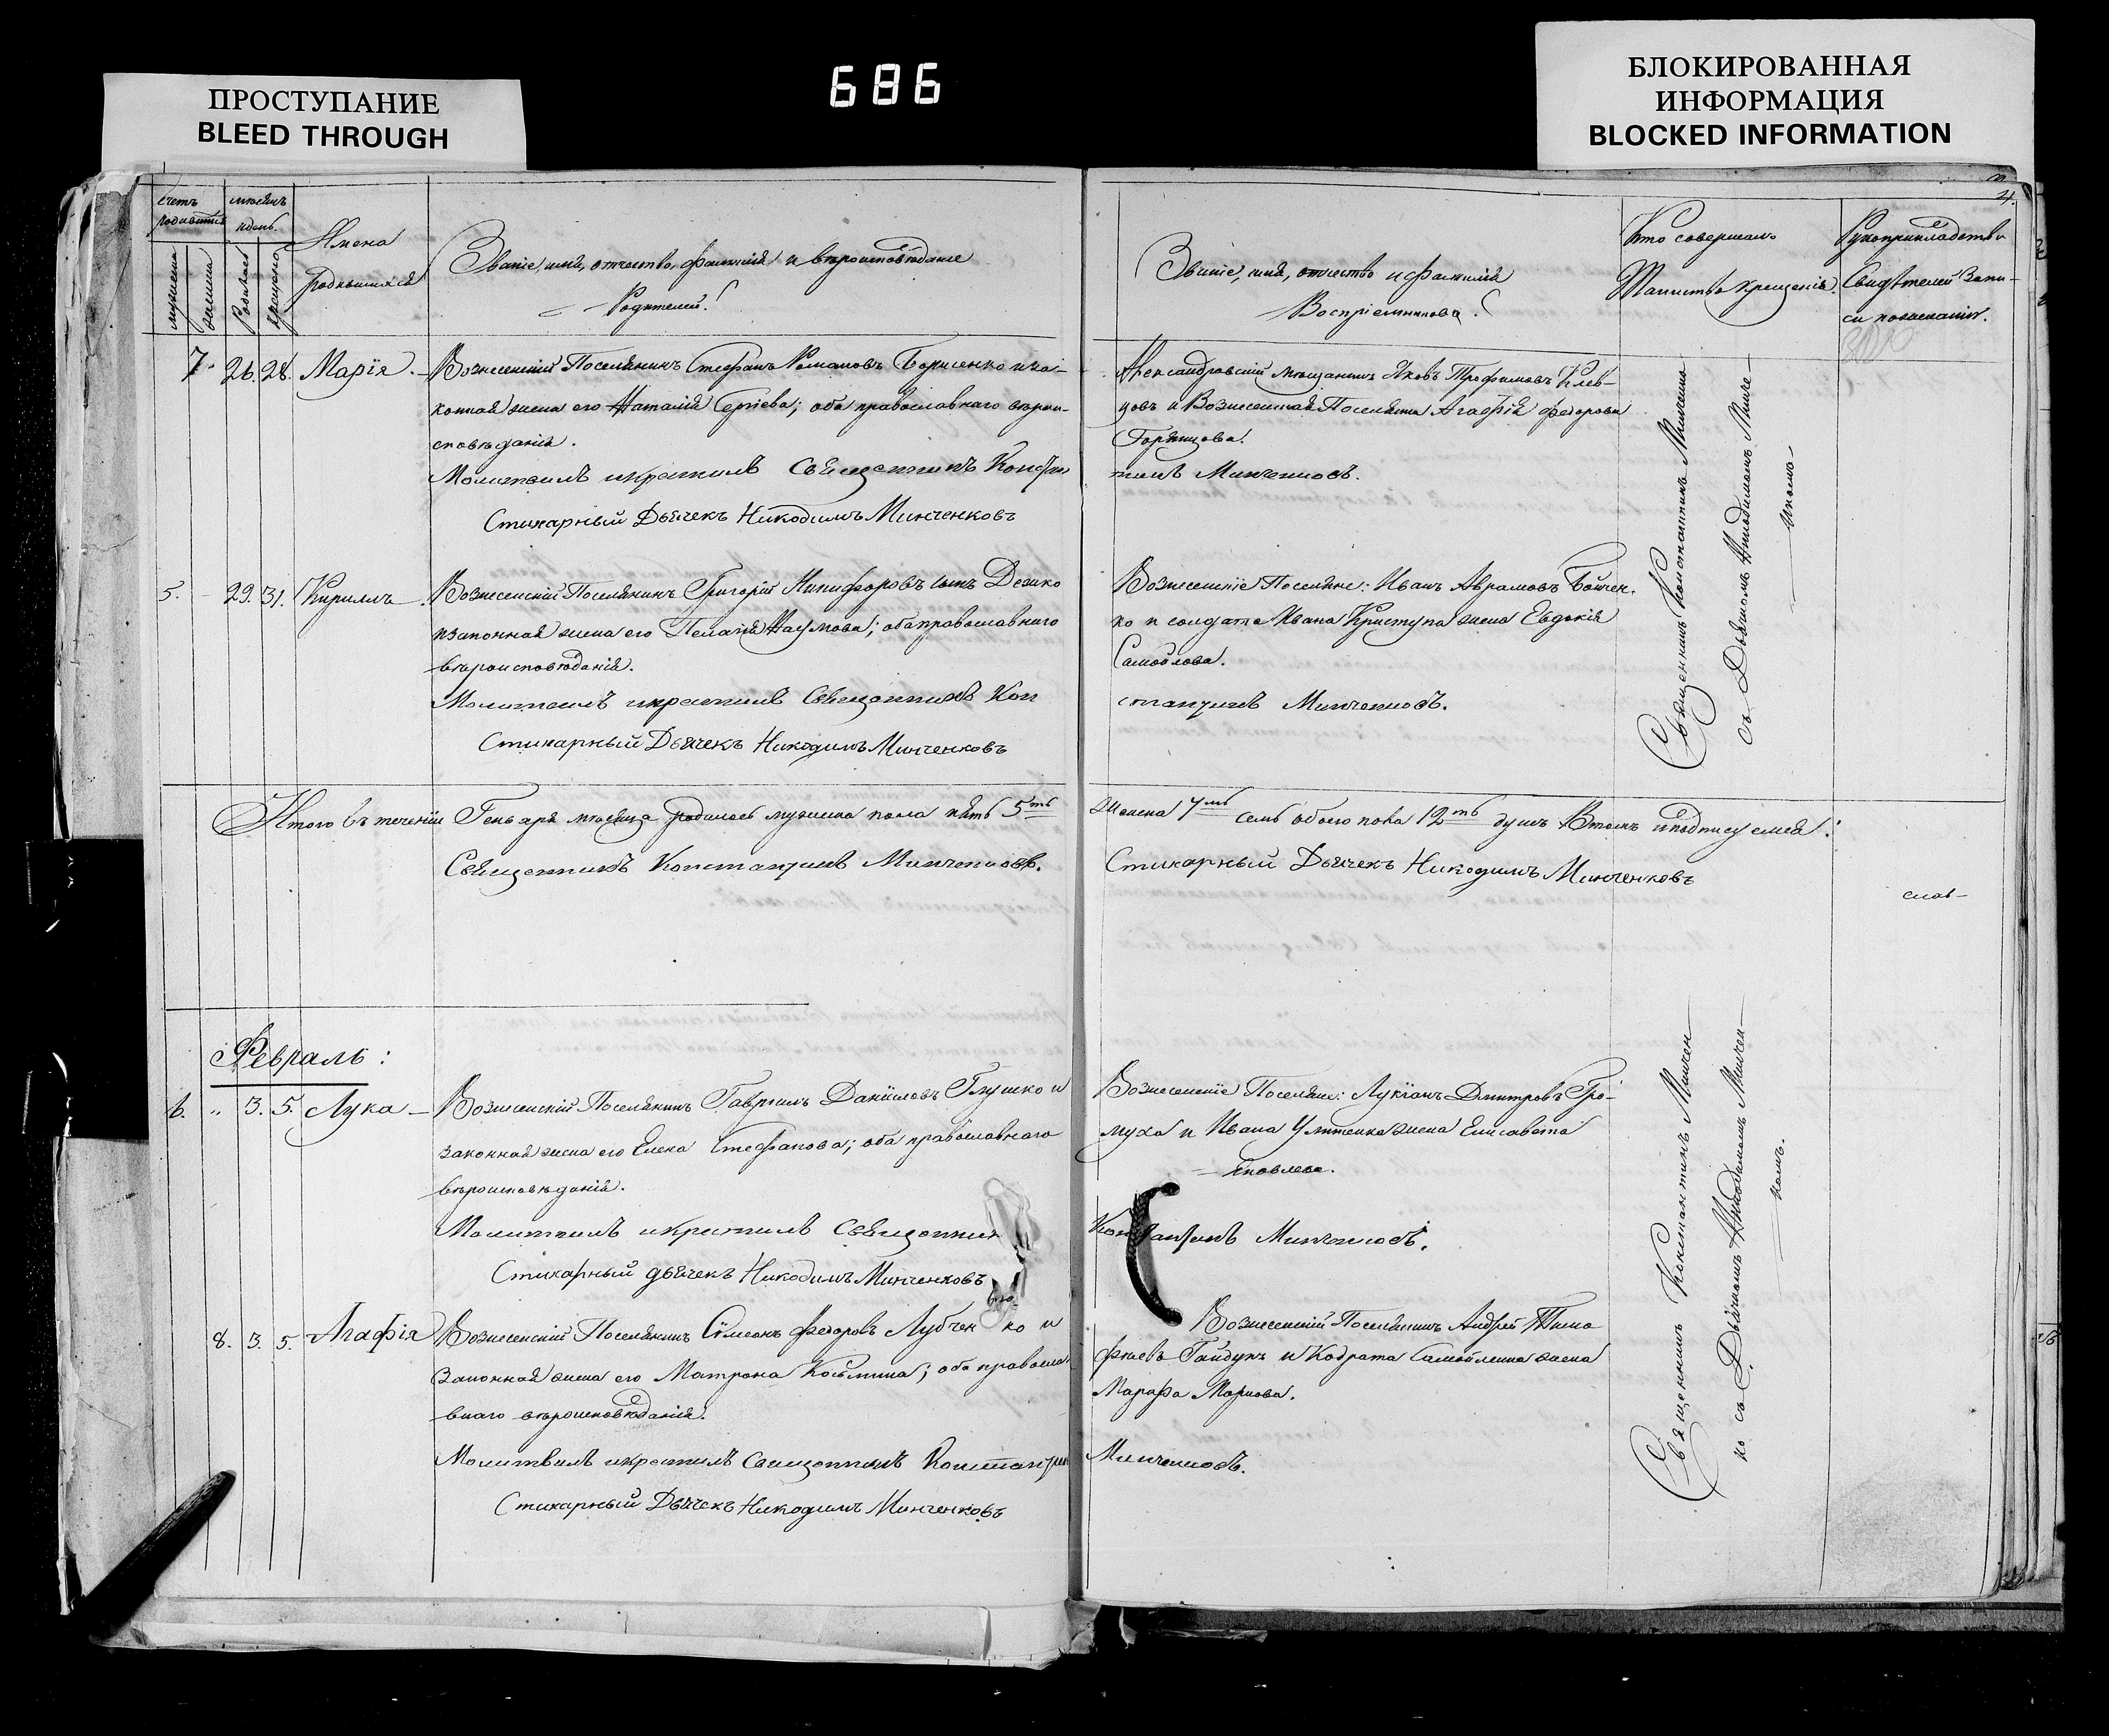 686
ПРОСТУПАНИЕ
BLEED THROUGH
БЛОКИРОВАННАЯ
ИНФОРМАЦИЯ
BLOCKED INFORMATION
Счетъ
родившихся
мѣсяцъ
и день.
мужеска
женска
Родилась
крещено
Имена
родившихся
Званіе, имя, отчество, фамилія и вѣроисповѣданіе
Родителей.
7. 26. 28. Марія.
Вознесенскій Поселянинъ Стефанъ Романовъ Борисенко и за-
конная жена его Наталія Сергіева; оба православнаго вѣрои-
сповѣданія.
Молитвилъ и крестилъ Священникъ Констан
Стихарный Дьячекъ Никодимъ Минченковъ
5. 29. 31. Кириллъ
Вознесенскій Поселянинъ Григорій Никифоровъ сынъ
и законная жена его Пелагія Наумова; оба православнаго
вѣроисповѣданія.
Молитвилъ и крестилъ Священникъ Кон
Стихарный Дьячекъ Никодимъ Минченковъ
Итого въ теченіи Генваря мѣсяца родилось мужеска пола пять 5ть
Священникъ Константинъ Минченковъ.
Февраль:
6. „ 3. 5. Лука
Вознесенскій Поселянинъ Гавріилъ Даниловъ Глушко и
законная жена его Елена Стефанова; оба православнаго
вѣроисповѣданія.
Молитвилъ и крестилъ Священник
Стихарный дьячекъ Никодимъ Минченковъ
8. 3. 5. Агафія
Вознесенскій Поселянинъ Сѵмеонъ Федоровъ Лубченко и
Законная жена его Матрона Косьмина; оба правосла
внаго вѣроисповѣданія.
Молитвилъ и крестилъ Священникъ Константин
Стихарный Дьячекъ Никодимъ Минченковъ
4.
Званіе, имя, отчество и фамилія
Воспріемниковъ.
Кто совершалъ
Таинство крещенія.
Рукоприкладство
Свидѣтелей Запи-
си по желанію.
Александровскій мѣщанинъ Яковъ Трофимовъ Клев-
цовъ и Вознесенская Поселянка Агафія Федорова
тинъ Минченковъ.
Вознесенскіе Поселяне: Иванъ Аврамовъ Бойчен-
ко и солдата Ивана Криступа жена Евдокія
Самойлова.
стантинъ Минченковъ.
Женска 7мь семь обоего пола 12ть душъ Въ томъ и подписуемся:
Стихарный Дьячекъ Никодимъ Минченковъ
Вознесенскіе Поселяне: Лукіанъ Дмитровъ Гро-
муха и Ивана жена Елисавета
Яковлева.
Константинъ Минченковъ.
Вознесенскій Поселянинъ Андрей Тимо
фѣевъ Гайдукъ и Кодрата Самойленка жена
Марфа Маркова.
Минченковъ.
Священникъ Константинъ Минченко
съ Дьячкомъ Никодимомъ Минче-
нкомъ
Священникъ Константинъ Минчен
ко съ Дьячкомъ Никодимомъ Минчен
комъ.